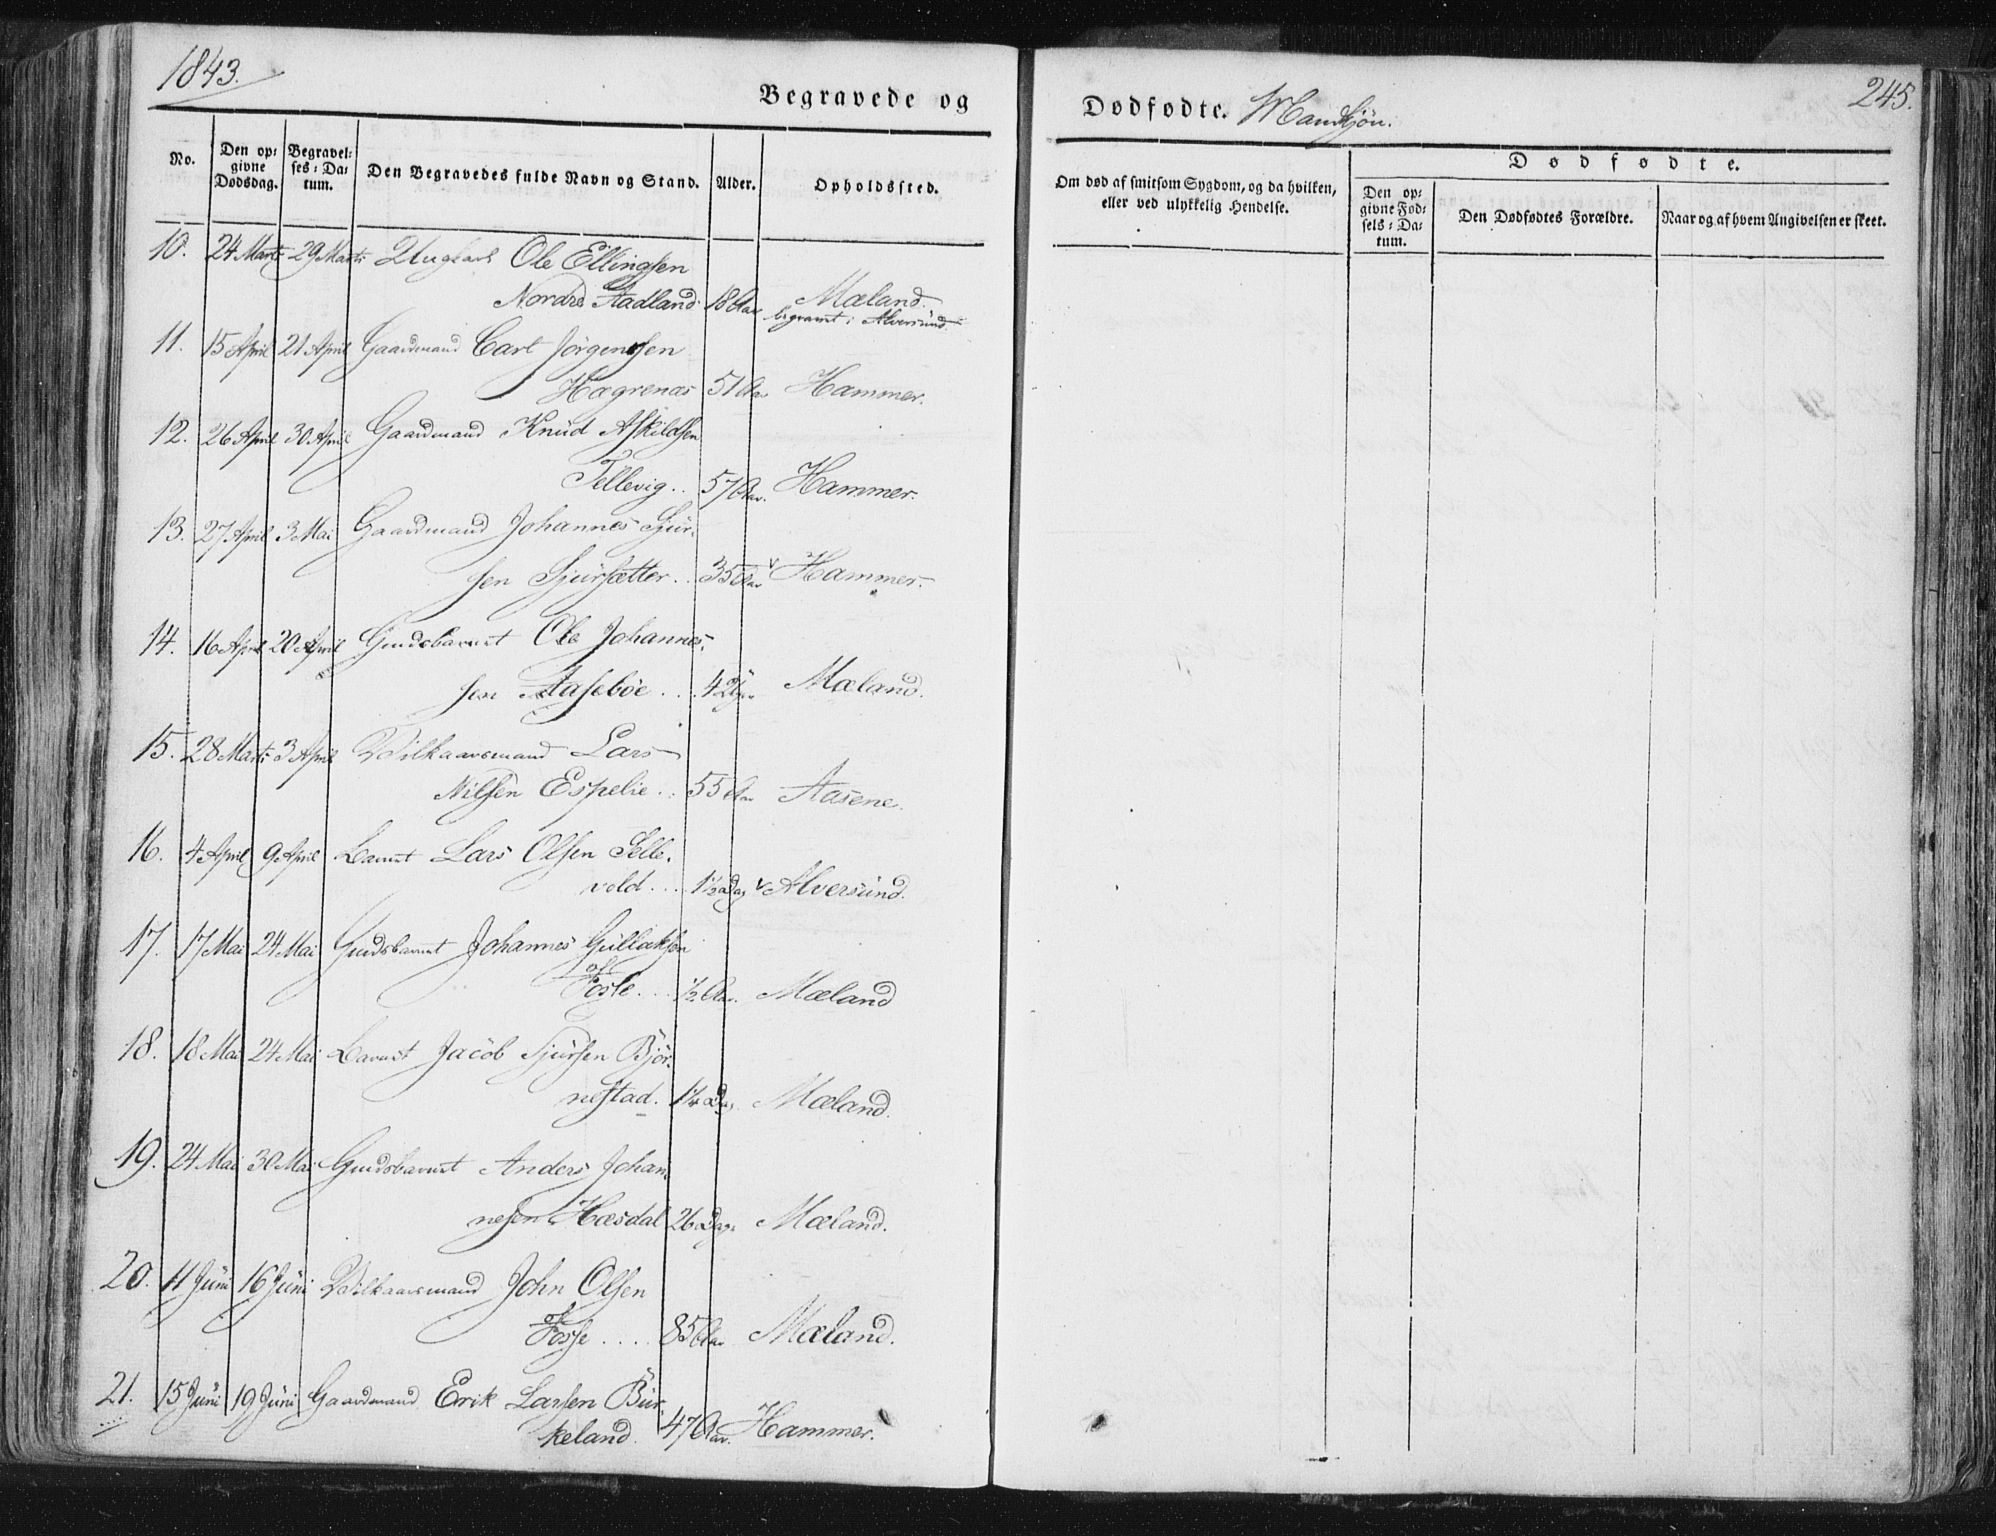 1843.
Begravede og
Dødfødte. Mandkjön.
245.
No.
Den opgivne Dødsdag.
Begravelses-Datum.
Den Begravedes fulde Navn og Stand.
Alder.
Opholdssted.
Om død af smitsom Sygdom, og da hvilken, eller ved ulykkelig Hendelse.
Dødfødte.
Den opgivne Fødsels-Datum.
Den Dødfødtes Forældre.
Naar og af hvem Angivelsen er skeet.
10. 24 Marts 29 Marts Ungkarl Ole Ellingsen
Nordre Aadland 18 Aar Mæland.
begravet i Alversund
11. 15 April 21 April Gaardmand Carl Jörgensen
Hagrenæs 51 Aar Hammer.
12. 26 April 30 April Gaardmand Knud Askildsen
Tellevig.. 57 Aar. Hammer.
13. 27 April 3 Mai Gaardmand Johannes Sjur-
sen Sjursætter.. 35 Aar Hammer.
14. 16 April 20 April Gaardsbarnet Ole Johannes-
sen Aasebøe... Mæland.
15. 28 Marts 3 April Vilkaarsmand Lars
Nilsen Espelie.. 55 Aar Aasene.
16. 4 April 9 April Barnet Lars Olsen Selle-
vold.... 1½ Dag Alversund.
17. 17 Mai 24 Mai Gaardsbarnet Johannes Gullaksen
Fosse... ½ Aar. Mæland
18. 18 Mai 24 Mai Barnet Jacob Sjursen Björ-
nestad. Dag. Mæland.
19. 24 Mai 30 Mai Gaardsbarnet Anders Johan-
nesen Hæsdal 26 Dage Mæland.
20. 11 Juni 16 Juni Vilkaarsmand John Olsen
Fosse..... 85 Aar Mæland.
21. 15 Juni 19 Juni Gaardmand Erik Larsen Bir-
keland. 47 Aar. Hammer.